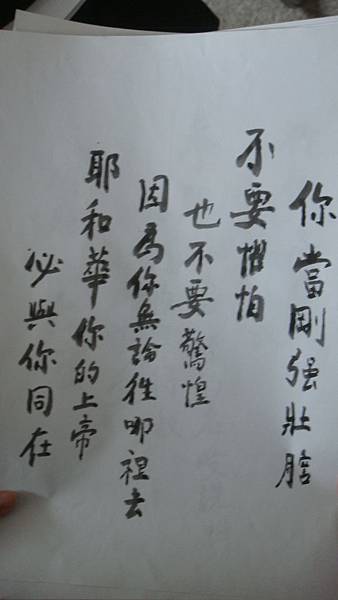 你當剛強壯膽
不要懼怕
也不要驚惶
因為你無論往哪裡去
耶和華你的上帝
必與你同在